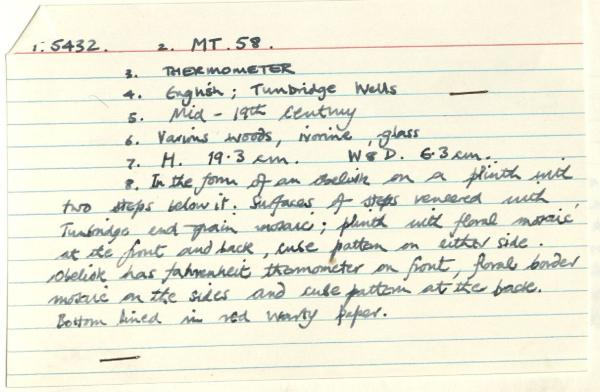 1. 5432. 2. MT. 58.
3. THERMOMETER
4. English; Tunbridge Wells
5. Mid-19th Century
6. Various woods, ivorine, glass
7. H. 19.3 cm. W & D. 6.3 cm.
8. In the form of an obelisk on a plinth with
two steps below it. Surfaces of steps veneered with
Tunbridge end-grain mosaic; plinth with floral mosaic
at the front and back, cube pattern on either side.
Obelisk has fahrenheit thermometer on front, floral border
mosaic on the sides and cube pattern at the back.
Bottom lined in red warty paper.